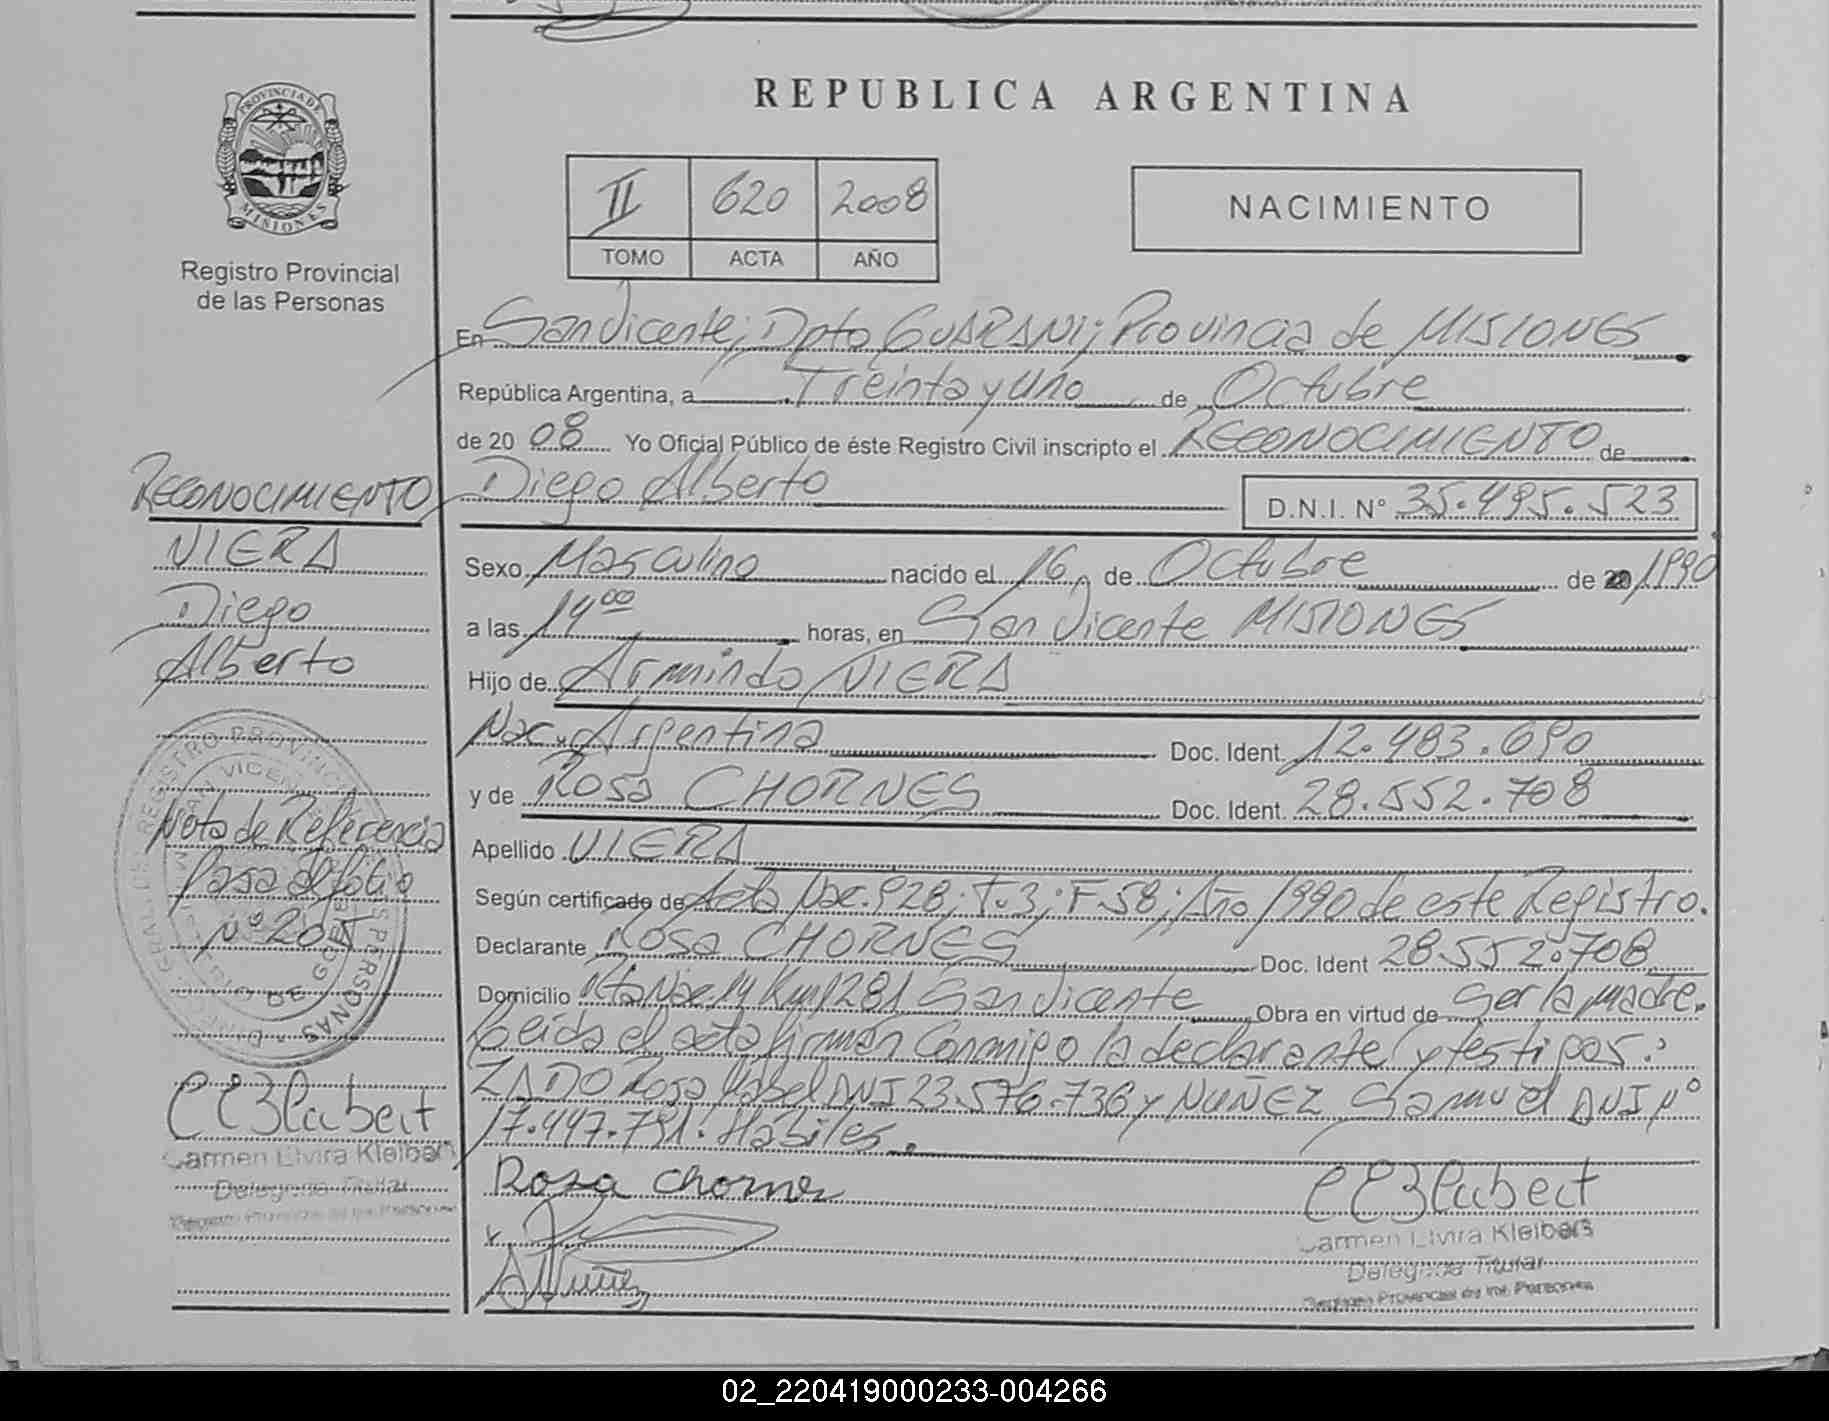 REPUBLICA ARGENTINA
PROVINCIA DE
MISIONES
Registro Provincial
de las Personas
II 620 2008
TOMO ACTA AÑO
NACIMIENTO
En San Vicente; Dpto GUARANI; Provincia de MISIONES
República Argentina, a Treinta y Uno de Octubre
de 20 08 Yo Oficial Público de éste Registro Civil inscripto el RECONOCIMIENTO de
Diego Alberto D.N.I. N° 35.495.523
Sexo Masculino nacido el 16 de Octubre de 20 1990
a las 14 00 horas, en San Vicente MISIONES
Hijo de Armindo VIERA
Nac. Argentina Doc. Ident. 12.483.690
y de Rosa CHORNES Doc. Ident. 28.552.708
Apellido VIERA
Según certificado de Acta Nac. 928; T.3; F.58; Año 1990 de este Registro.
Declarante Rosa CHORNES Doc. Ident 28.552.708
Domicilio Rta Nac 14 Km 1281 San Vicente Obra en virtud de ser la madre.
Leida el acta firman conmigo la declarante y testigos:
ZADO Rosa Mabel DNI 23.576.736 y NUÑEZ Samuel DNI N°
17.447.791. Hábiles.
Rosa Chornes
Carmen Elvira Kleibert
Delegada Titular
Registro Provincial de las Personas
RECONOCIMIENTO
VIERA
Diego
Alberto
Nota de Referencia
Pasa al folio
N° 201
Carmen Elvira Kleibert
Delegada Titular
Registro Provincial de las Personas
02_220419000233-004266